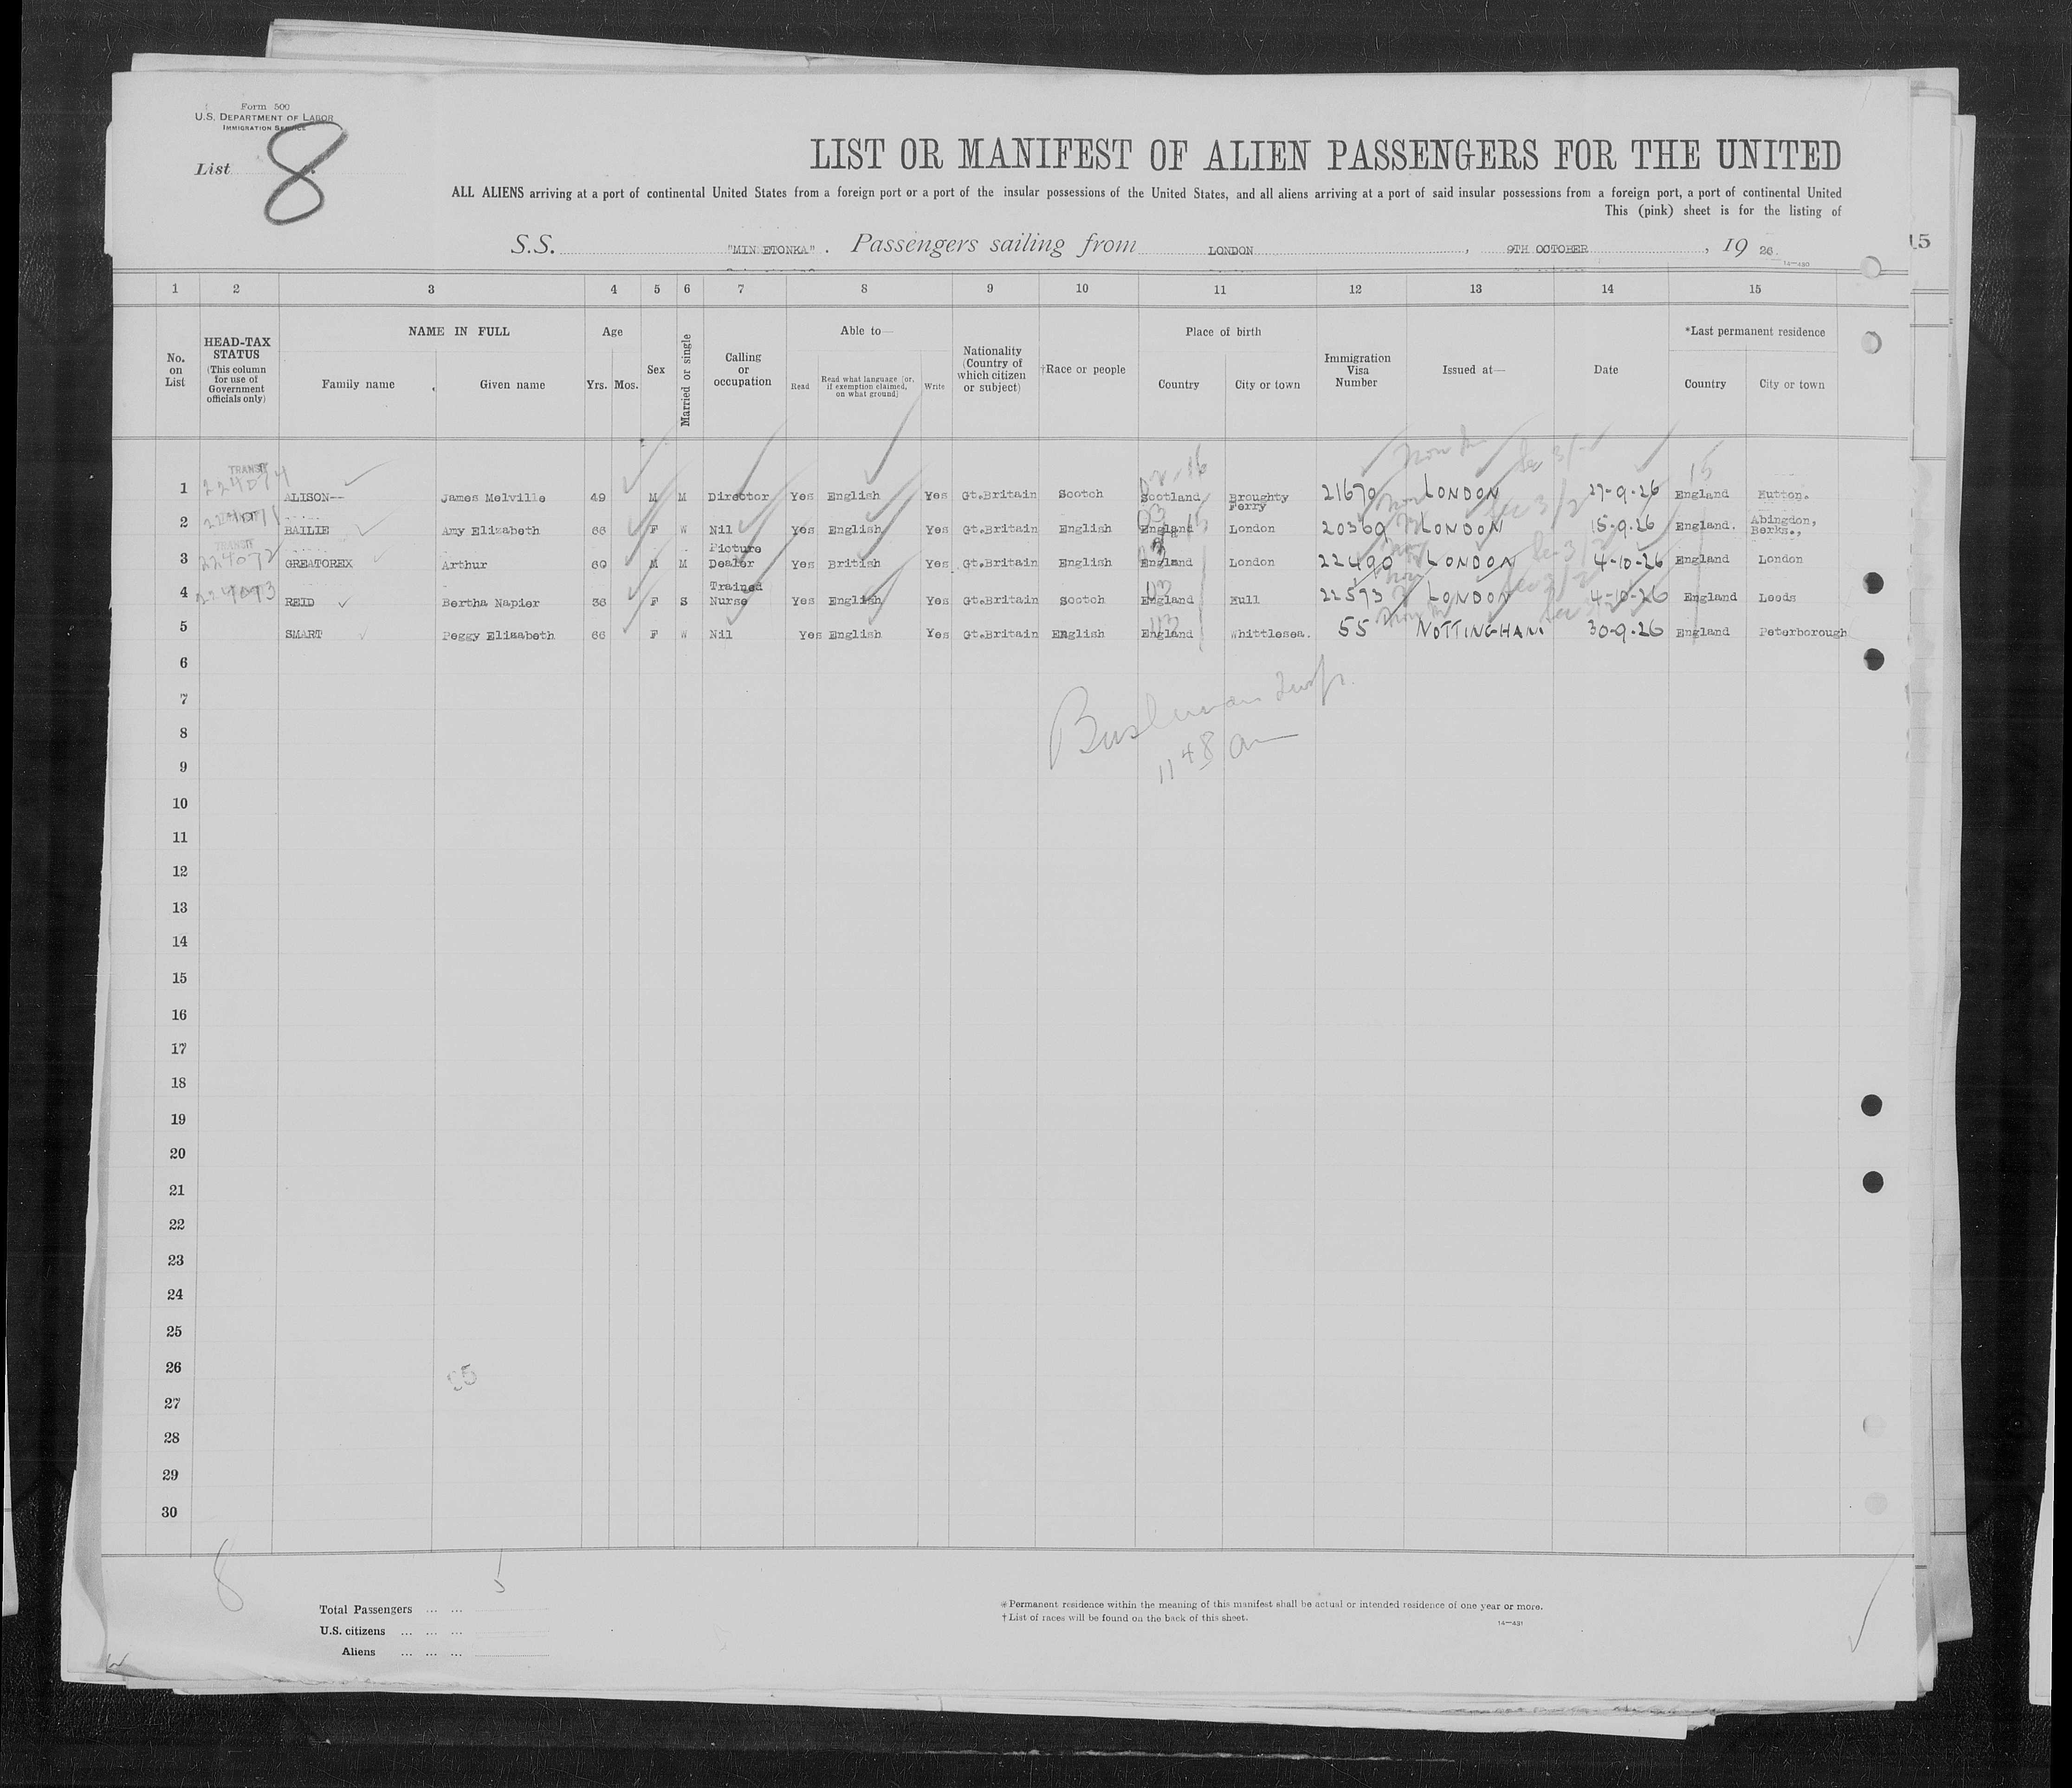 Form 500
U.S. DEPARTMENT OF LABOR
IMMIGRATION SERVICE
List 8
LIST OR MANIFEST OF ALIEN PASSENGERS FOR THE UNITED
ALL ALIENS arriving at a port of continental United States from a foreign port or a port of the insular possessions of the United States, and all aliens arriving at a port of said insular possessions from a foreign port, a port of continental United
This (pink) sheet is for the listing of
S.S. "MINNETONKA". Passengers sailing from LONDON, 9TH OCTOBER, 19 26.
14—430
15
1 2 3 4 5 6 7 8 9 10 11 12 13 14 15
No. on List
HEAD-TAX STATUS (This column for use of Government officials only)
NAME IN FULL
Family name
Given name
Age
Yrs. Mos.
Sex
Married or single
Calling or occupation
Able to—
Read
Read what language (or, if exemption claimed, on what ground)
Write
Nationality (Country of which citizen or subject)
†Race or people
Place of birth
Country
City or town
Immigration Visa Number
Issued at—
Date
*Last permanent residence
Country
City or town
1 TRANSIT ALISON-- James Melville 49 M M Director Yes English Yes Gt.Britain Scotch Scotland Broughty Ferry 21670 LONDON 27-9-26 England Hutton.
2 BAILIE Amy Elizabeth 66 F W Nil Yes English Yes Gt.Britain English England London 20369 LONDON 15-9-26 England. Abingdon, Berks.,
3 TRANSIT 224072 GREATOREX Arthur 60 M M Picture Dealer Yes British Yes Gt.Britain English England London 22490 LONDON 4-10-26 England London
4 224073 REID Bertha Napier 36 F S Trained Nurse Yes English Yes Gt.Britain Scotch England Hull 22593 LONDON 4-10-26 England Leeds
5 SMART Peggy Elizabeth 66 F W Nil Yes English Yes Gt.Britain English England Whittlesea. 55 NOTTINGHAM 30-9-26 England Peterborough
6
7
8
9
10
11
12
13
14
15
16
17
18
19
20
21
22
23
24
25
26
27
28
29
30
11 48 am
8
5
Total Passengers ... ...
U.S. citizens ... ... ...
Aliens ... ... ...
*Permanent residence within the meaning of this manifest shall be actual or intended residence of one year or more.
†List of races will be found on the back of this sheet.
14—431